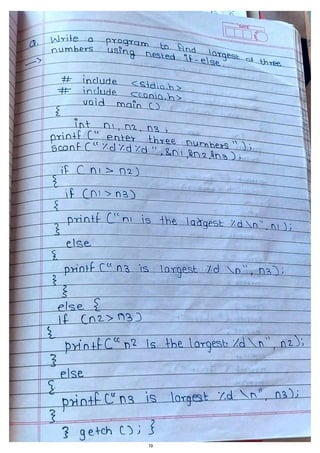 Q. Write a program to find largest of three
numbers using nested if-else
→
# include <stdio.h>
# include <conio.h>
void main ()
{
int n1, n2, n3;
printf ("enter three numbers");
scanf ("%d%d%d", &n1, &n2, &n3);
if (n1 > n2)
{
if (n1 > n3)
{
printf ("n1 is the largest %d \n", n1);
}
else
{
printf ("n3 is largest %d \n", n3);
}
}
else {
if (n2 > n3)
{
printf ("n2 is the largest %d \n", n2);
}
else
{
printf ("n3 is largest %d \n", n3);
}
} getch (); }